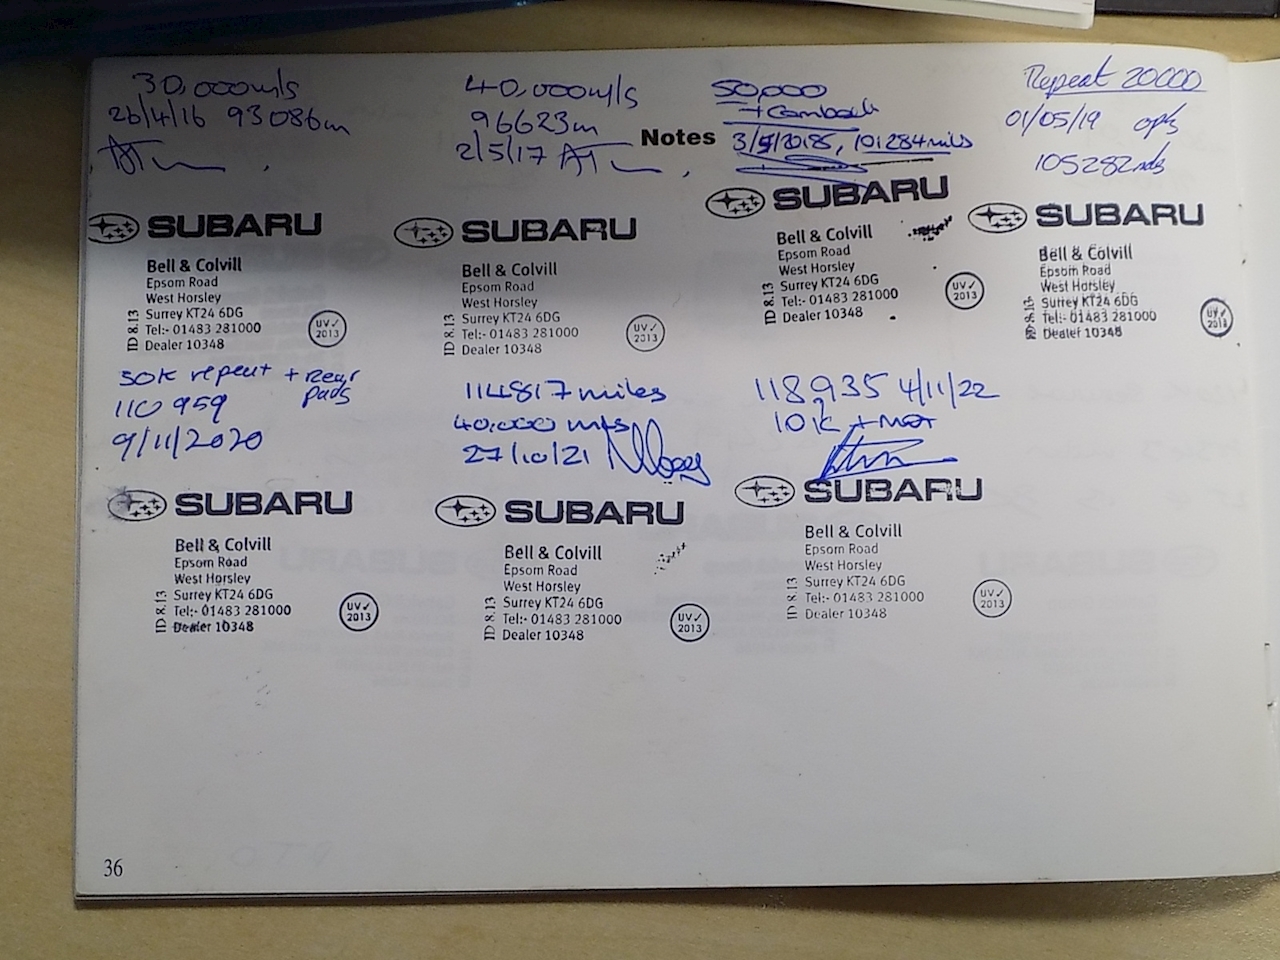 30,000mls
26/4/16 93086m
SUBARU
Bell & Colvill
Epsom Road
West Horsley
Surrey KT24 6DG
Tel:- 01483 281000
Dealer 10348
ID 8.13
UV✓
2013
40,000mls
96623m
2/5/17
SUBARU
Bell & Colvill
Epsom Road
West Horsley
Surrey KT24 6DG
Tel:- 01483 281000
Dealer 10348
ID 8.13
UV✓
2013
50,000
Notes
101284miles
SUBARU
Bell & Colvill
Epsom Road
West Horsley
Surrey KT24 6DG
Tel:- 01483 281000
Dealer 10348
ID 8.13
UV✓
2013
Repeat 20000
01/05/19
105282mls
SUBARU
Bell & Colvill
Epsom Road
West Horsley
Surrey KT24 6DG
Tel:- 01483 281000
Dealer 10348
UV✓
2013
30K repeat + Rear
Pads
110959
9/11/2020
SUBARU
Bell & Colvill
Epsom Road
West Horsley
Surrey KT24 6DG
Tel:- 01483 281000
Dealer 10348
ID 8.13
UV✓
2013
114817 miles
40,000 mls
27/10/21
SUBARU
Bell & Colvill
Epsom Road
West Horsley
Surrey KT24 6DG
Tel:- 01483 281000
Dealer 10348
ID 8.13
UV✓
2013
118935 4/11/22
10K + MOT
SUBARU
Bell & Colvill
Epsom Road
West Horsley
Surrey KT24 6DG
Tel:- 01483 281000
Dealer 10348
ID 8.13
UV✓
2013
36